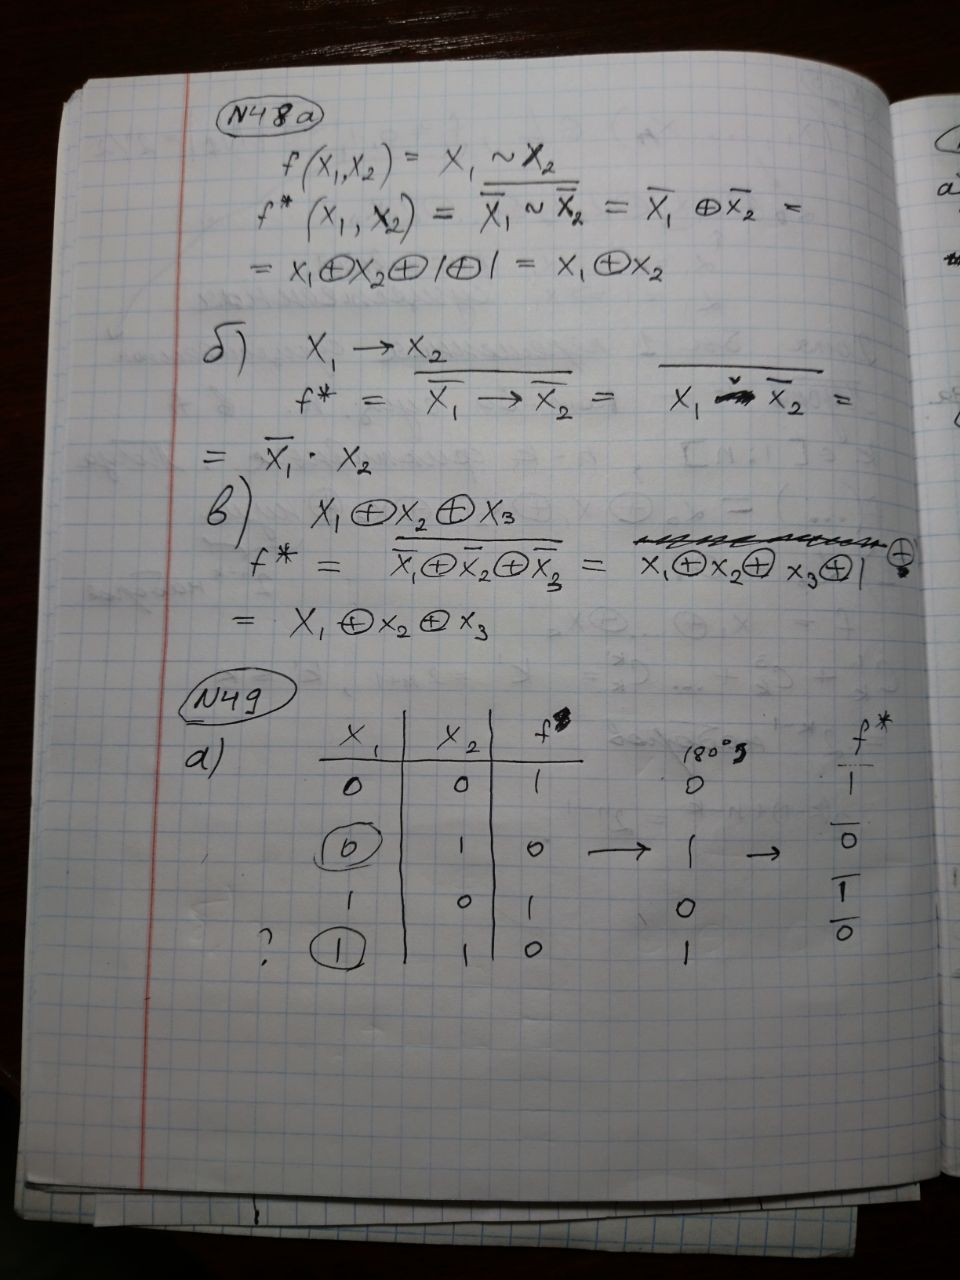 N48a
f(x₁,x₂) = x₁ ~ x₂
f*(x₁, x₂) = \overline{x̄₁ ~ x̄₂} = x̄₁ ⊕ x̄₂ =
= x₁⊕x₂⊕1⊕1 = x₁⊕x₂
б) x₁ → x₂
f* = \overline{x̄₁ → x̄₂} = \overline{x₁ ∨ x̄₂} =
= x̄₁ · x₂
в) x₁⊕x₂⊕x₃
f* = \overline{x̄₁⊕x̄₂⊕x̄₃} = x₁⊕x₂⊕x₃⊕1⊕
= x₁⊕x₂⊕x₃
N49
а) x₁ x₂ f 180° f*
0 0 1 0 1
0 1 0 → 1 → 0
1 0 1 0 1
? 1 1 0 1 0